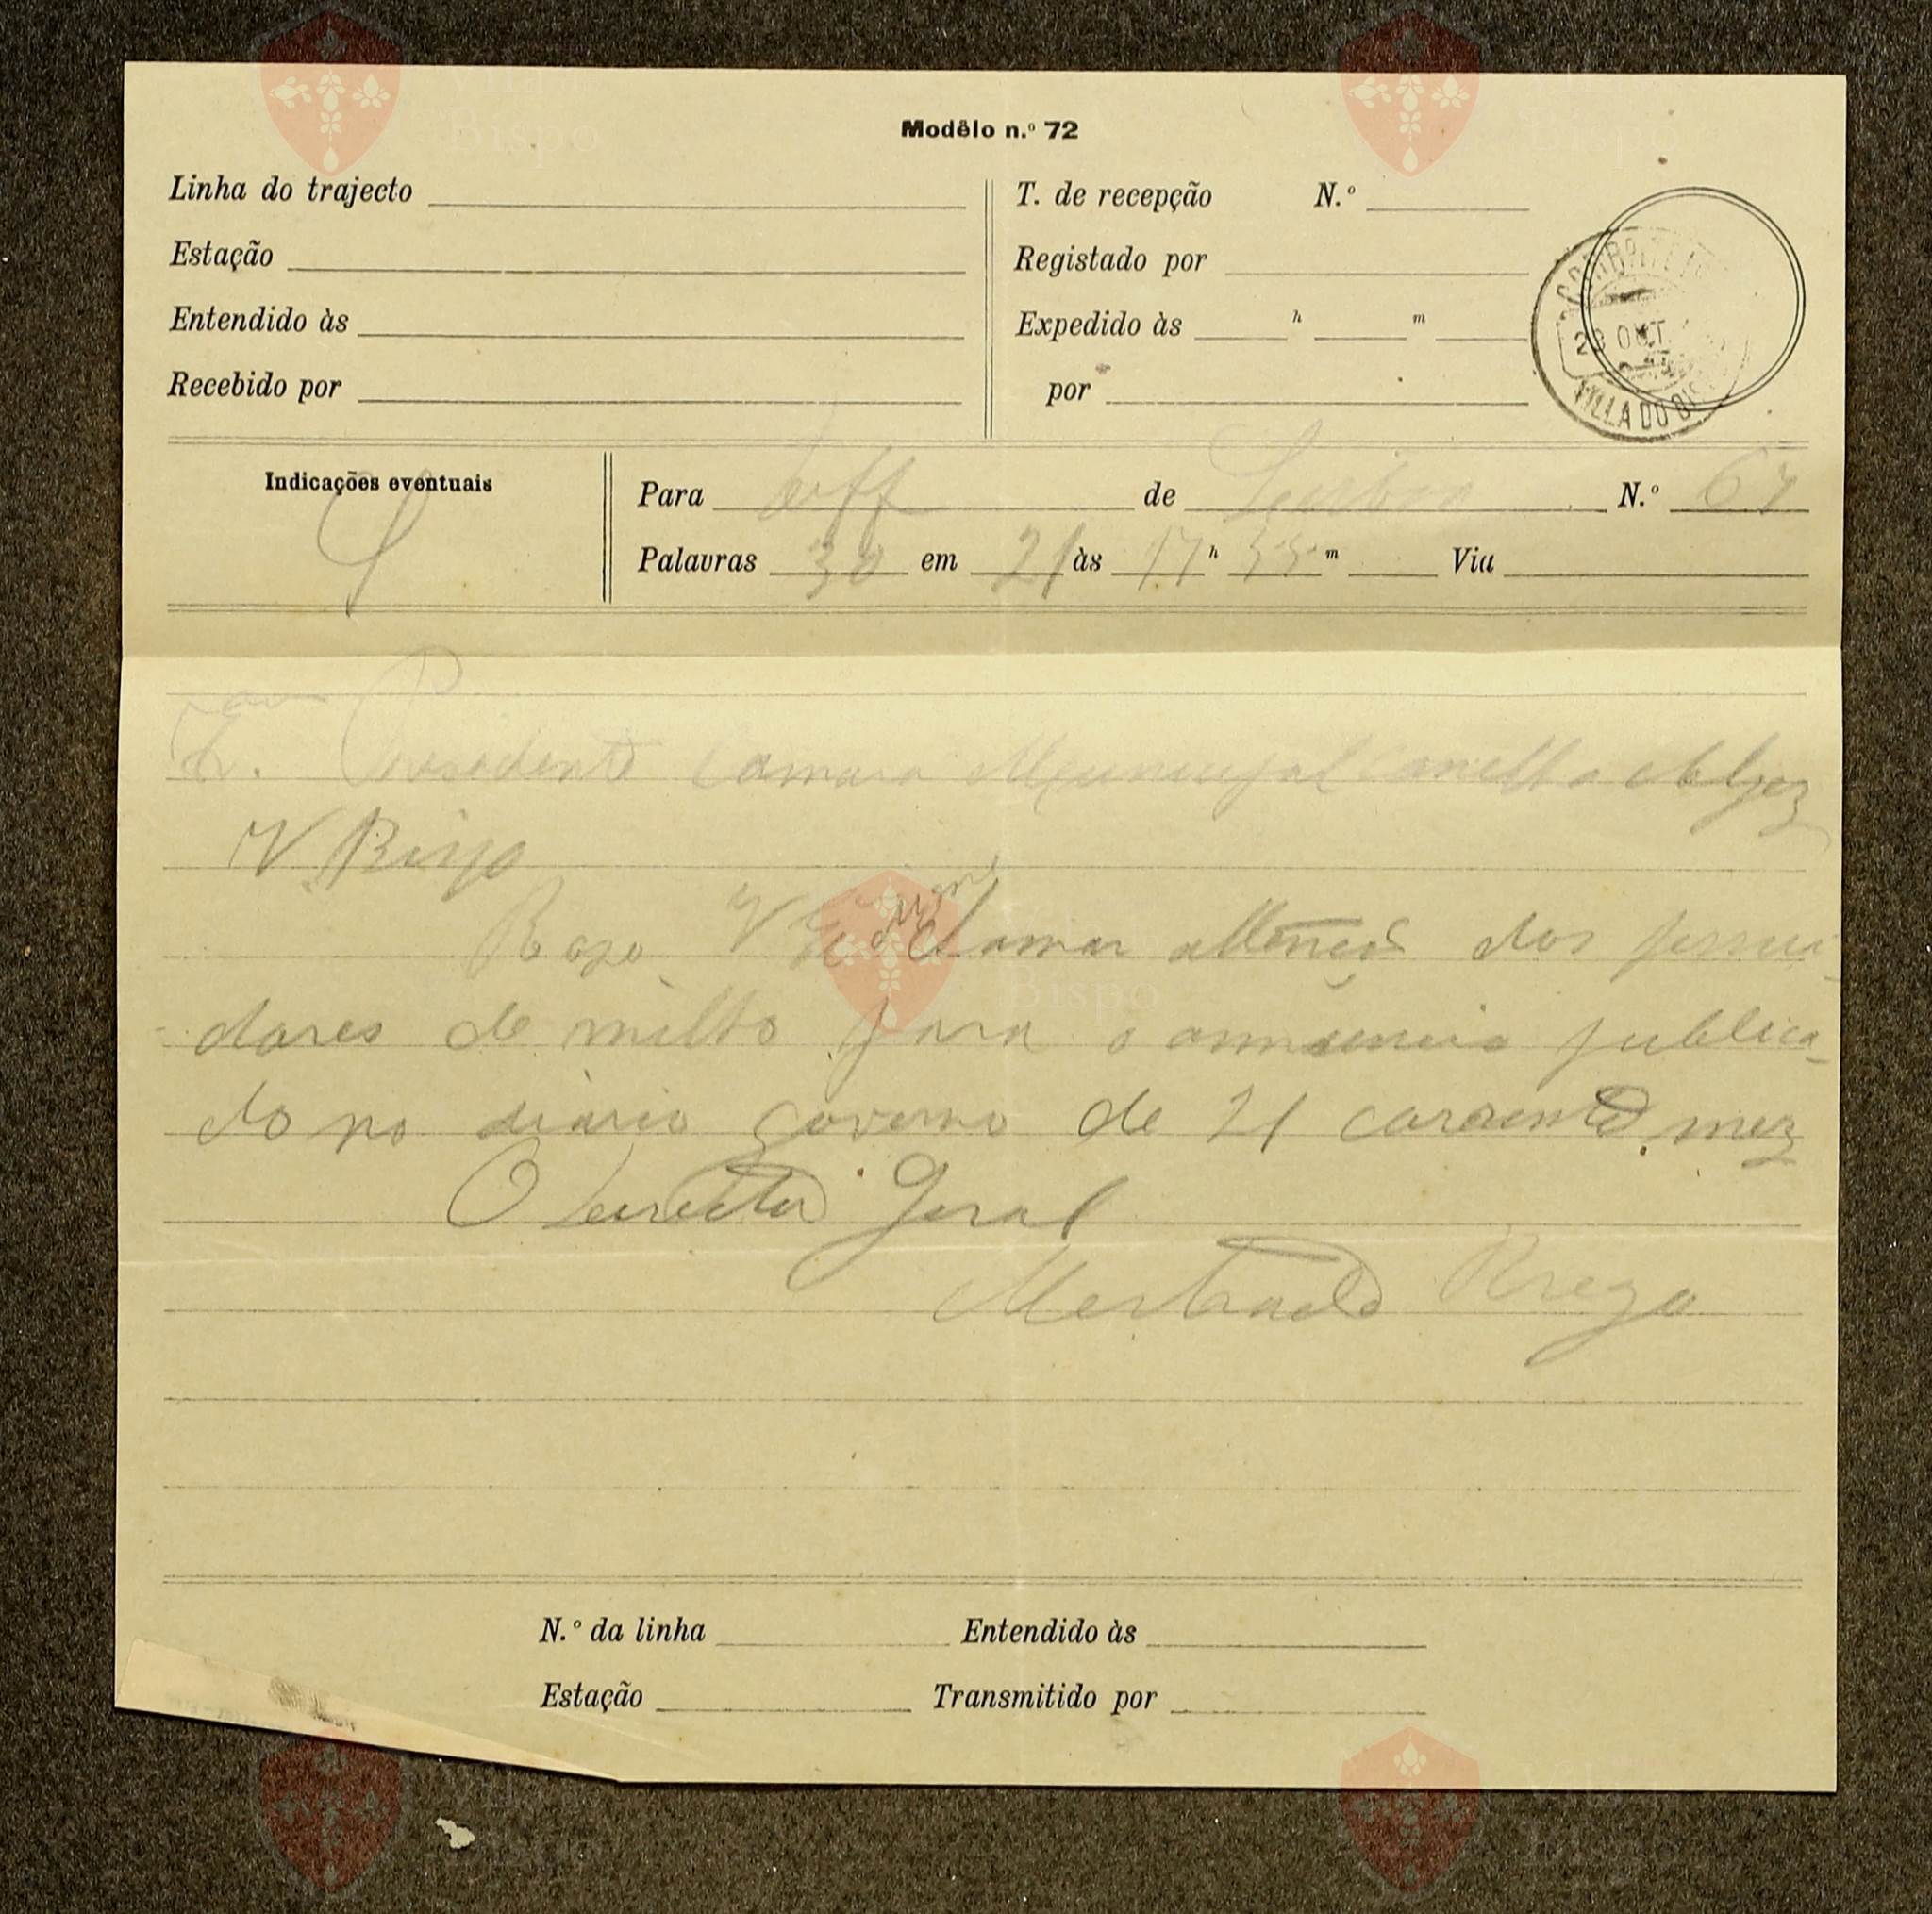 Modêlo n.º 72
Linha do trajecto
T. de recepção N.º
Estação
Registado por
Entendido às
Expedido às h m
Recebido por
por
28 OUT.
VILLA DO BISPO
Indicações eventuais
S
Para off de Lisboa N.º 67
Palavras 30 em 21 às 17 h 55 m Via
Presidente Camara Municipal
V Bispo
Rogo V Ex digne chamar attenção dos
dores de milho para o annuncio publica-
do no diario governo de 21 corrente mez
O Director Geral
Rego
N.º da linha Entendido às
Estação Transmitido por
Vila do Bispo